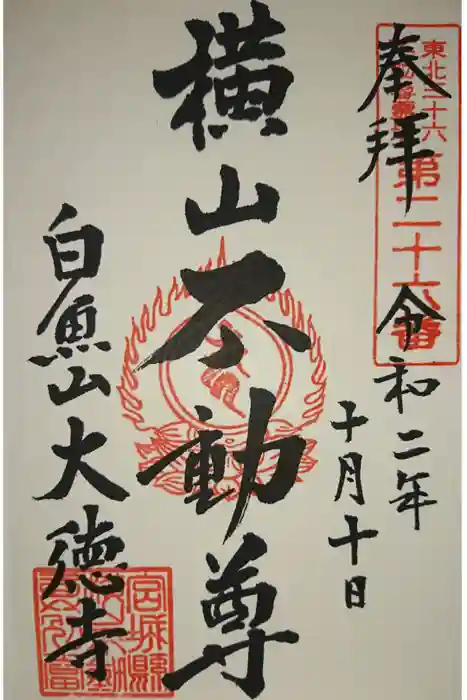 東北三十六
第二十六番
奉拝
令和二年
十月十日
横山不動尊
白魚山大徳寺
宮城縣